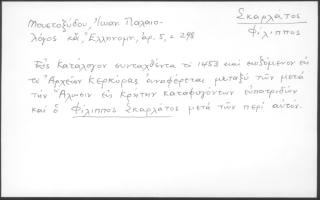 Σκαρλάτος
Φίλιππος
Μουστοξύδου, Ἰωαν. Παλαιο-
λόγος κἄ, Ἑλληνομν, ἀρ. 5, σ. 298
Εἰς Κατάλογον συνταχθέντα τὸ 1453 καὶ σωζόμενον εἰς
τὸ Ἀρχεῖον Κερκύρας ἀναφέρεται μεταξὺ τῶν μετὰ
τὴν Ἅλωσιν εἰς Κρήτην καταφυγόντων εὐπατριδῶν
καὶ ὁ Φίλιππος Σκαρλάτος μετὰ τῶν περὶ αὐτόν.